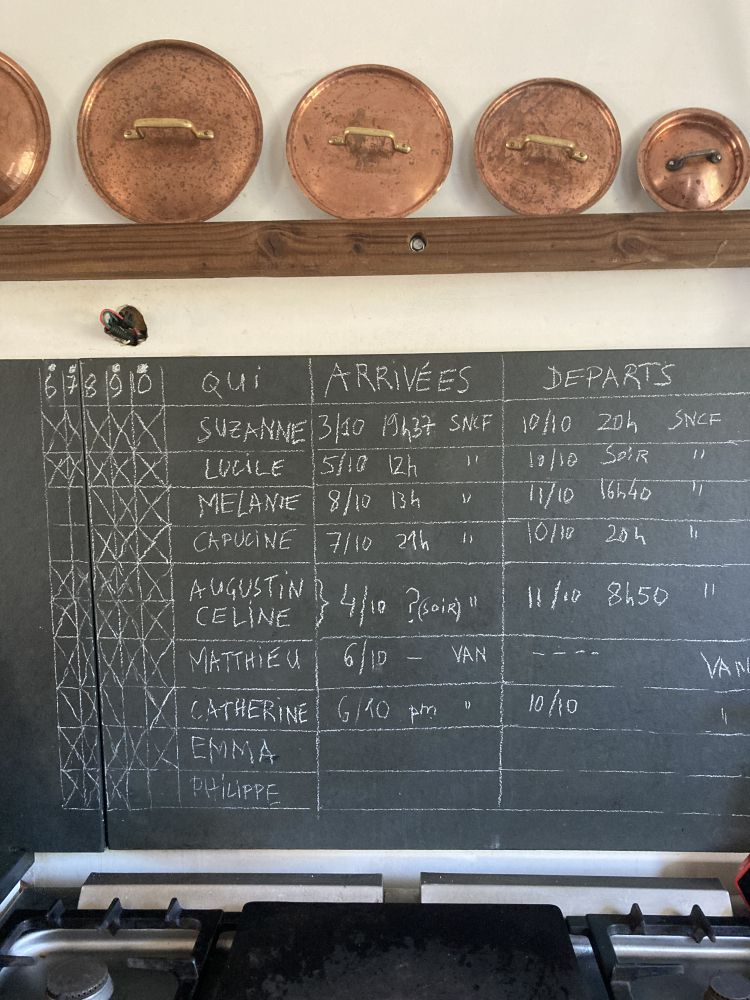 6 7 8 9 10 QUI ARRIVÉES DEPARTS
SUZANNE 3/10 19h37 SNCF 10/10 20h SNCF
LUCILE 5/10 12h " 10/10 SOIR "
MELANIE 8/10 13h " 11/10 16h40 "
CAPUCINE 7/10 21h " 10/10 20h "
AUGUSTIN
CELINE } 4/10 ? (SOIR) " 11/10 8h50 "
MATTHIEU 6/10 — VAN ---- VAN
CATHERINE 6/10 pm " 10/10 "
EMMA
PHILIPPE